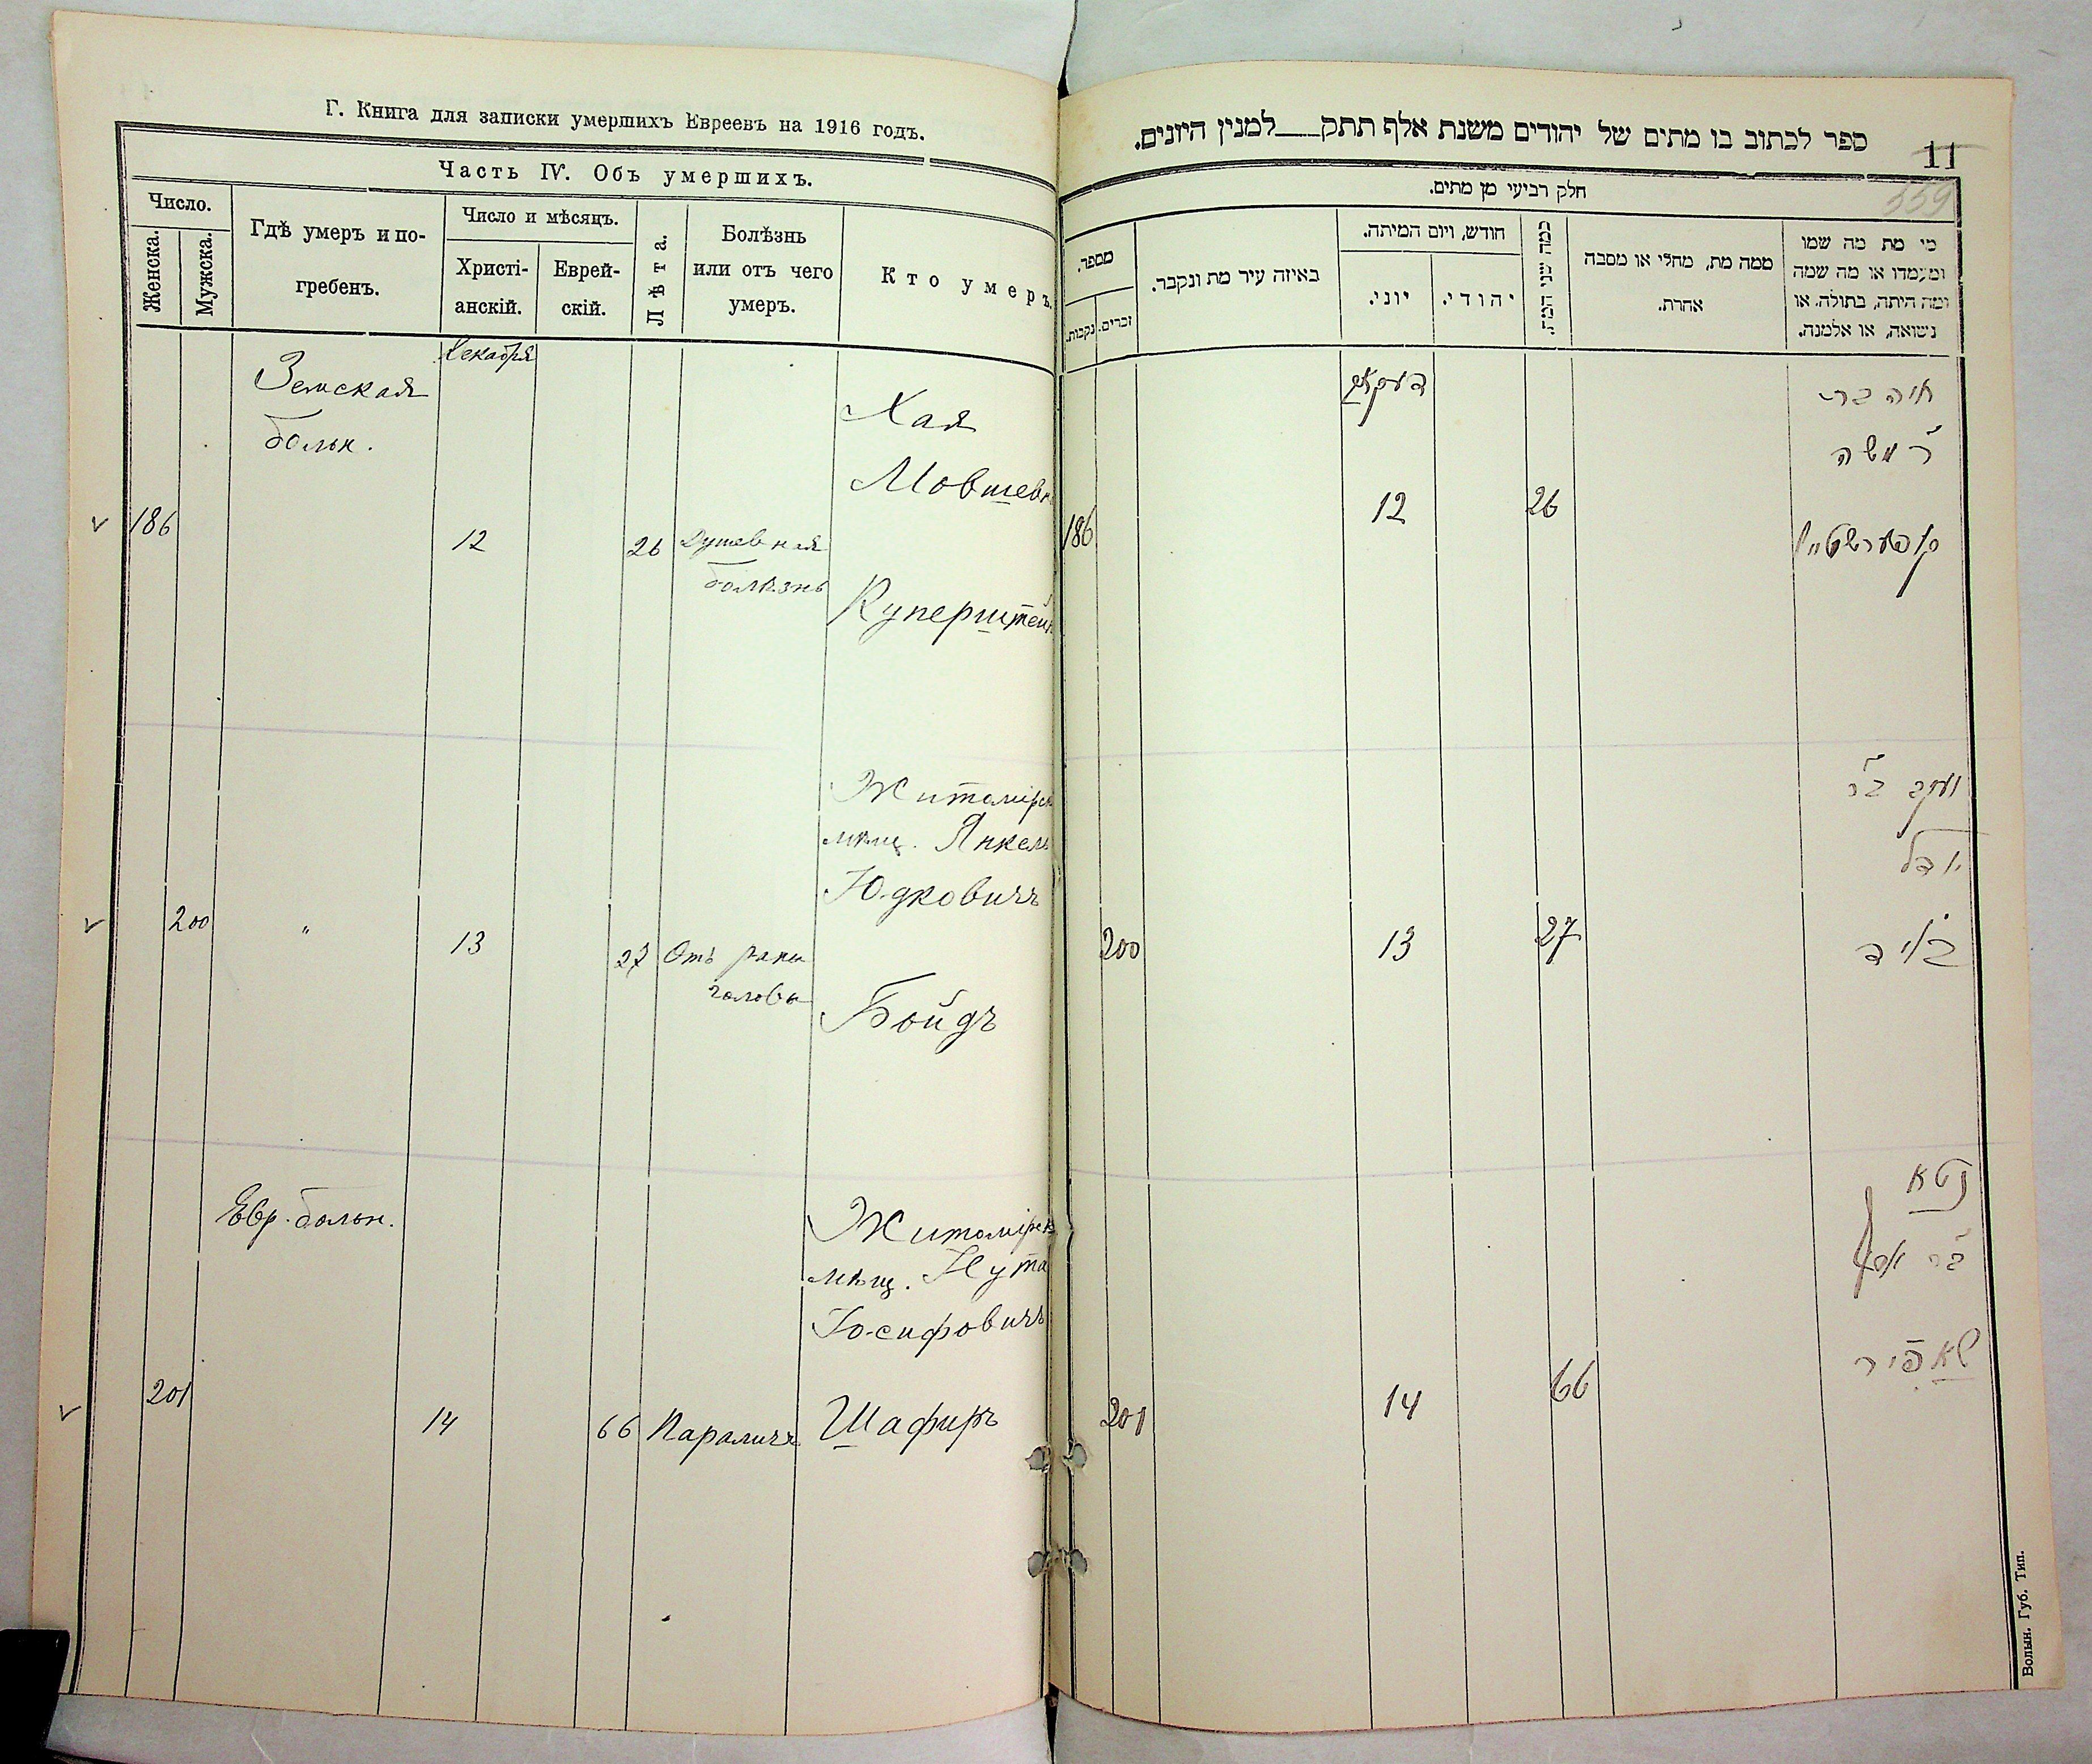 Г. Книга для записки умершихъ Евреевъ на 1916 годъ.
Часть IV. Объ умершихъ.
Число.
Женска.
Мужска.
Гдѣ умеръ и по-
гребенъ.
Число и мѣсяцъ.
Христі-
анскій.
Еврей-
скій.
Лѣта.
Болѣзнь
или отъ чего
умеръ.
Кто умеръ.
Декабря
Земская
больн.
186
12
26
Душевная
болѣзнь
Хая
Мовшевн
Куперштейн
200
"
13
27
Отъ раны
головы
Житомірск
мѣщ. Янкель
Юдковичъ
Бойдъ
Евр. больн.
201
14
66
Параличъ
Житомірск
мѣщ. Нута
Іосифовичъ
Шафиръ
ספר לכתוב בו מתים של יהודים משנת אלף תתק___למנין היונים.
11
359
חלק רביעי מן מתים.
מספר.
נקבות.
זכרים.
באיזה עיר מת ונקבר.
חודש, ויום המיתה.
יוני.
יהודי.
כמה שני המת.
ממה מת, מחלי או מסבה
אחרת.
מי מת מה שמו
ומעמדו או מה שמה
ומה היתה, בתולה, או
נשואה, או אלמנה.
186
12
26
חיה בר
ר' משה
קופערשטיין
200
13
27
יעקב בר
יודל
בויד
201
14
66
נטא
בר יוסף
שאפיר
Волын. Губ. Тип.